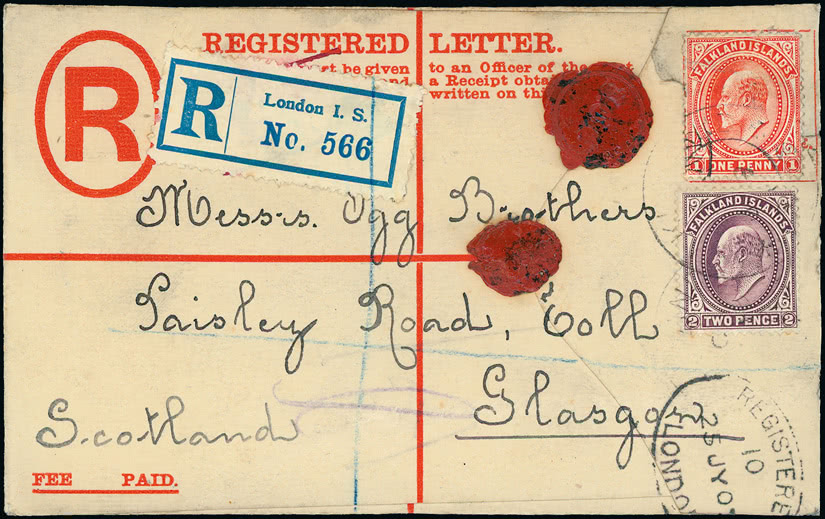 REGISTERED LETTER.
be given to an Officer of the
a Receipt
written on
R
R
London I. S.
No. 566
FALKLAND ISLANDS
1 ONE PENNY 1
FALKLAND ISLANDS
2 TWO PENCE 2
Messrs. Ogg Brothers
Paisley Road, Toll
Glasgow
Scotland
FEE PAID.
REGISTERED
10
25 JY 0
LONDON